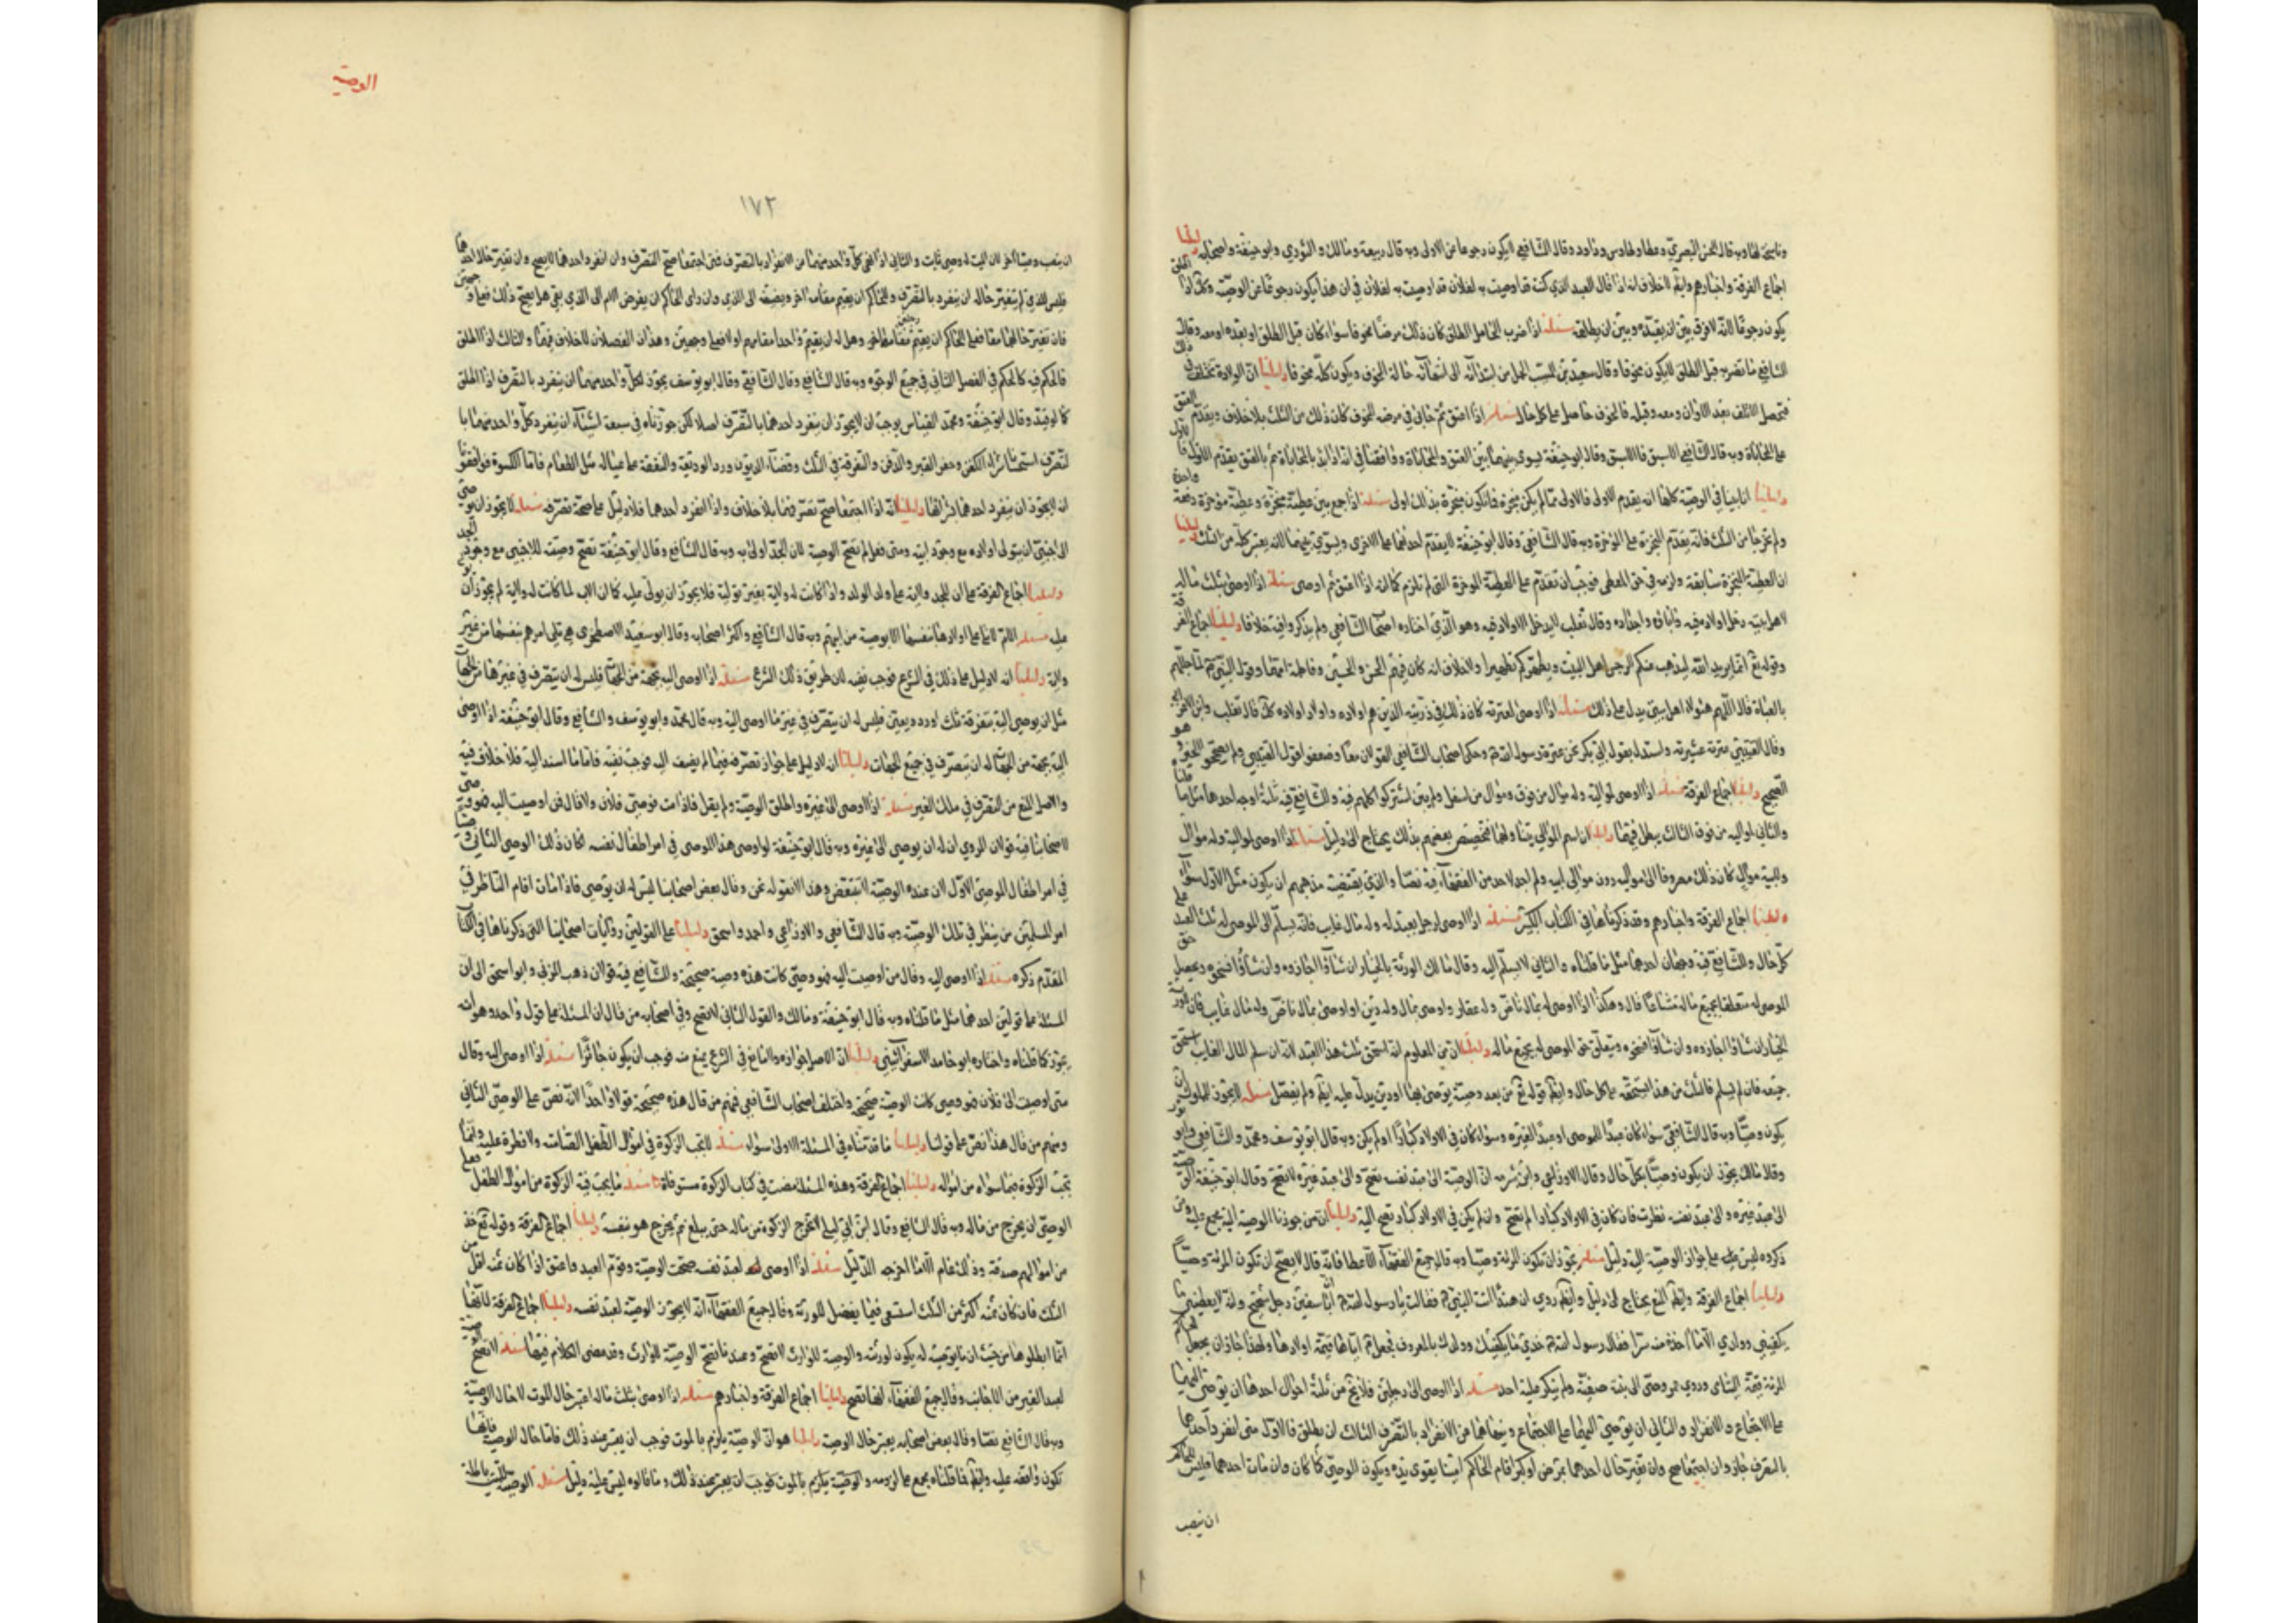 وناسخ لها وبه قال الحسن البصري وعطا وطاوس وداود وقال الشافعي لا يكون رجوعا عن الاولى وبه قال ربيعة ومالك والثوري وابو حنيفة واصحابه دليلنا
اجماع الفرقة واخبارهم وايضا لا خلاف انه اذا قال العبد الذي كنت قد اوصيت به لفلان قد اوصيت به لفلان في ان هذا يكون رجوعا عن الوصية وكك اذا اطلق
يكون رجوعا لانه لا فرق بين ان يقيده وبين ان يطلقه مسئلة اذا ضرب الحامل الطلق كان ذلك مرضا مخوفا سواء كان قبل الطلق او بعده او معه وقال
الشافعي ما تضربه قبل الطلق لا يكون مخوفا وقال سعيد بن المسيب الحمل من ابتدائه الى انتهائه حالة الخوف ويكون كله مخوفا دليلنا ان الولادة تختلف في ذلك
فيحصل التلف بعد الاوان ومعه وقبله فالخوف حاصل على كل حال مسئلة اذا اعتق ثم حابى في مرضه المخوف كان ذلك من الثلث بلا خلاف ويقدم العتق
على المحاباة وبه قال الشافعي الاسبق فالاسبق وقال ابو حنيفة يسوى بينهما بين العتق والمحاباة ووافقنا في انه اذا بدا بالمحاباة ثم بالعتق يقدم الاول فالاول
دليلنا انا بينا في الوصية كلها انه يقدم الاولى فالاولى مما لم يكن منجزة فلان تكون منجزة بذلك اولى مسئلة اذا جمع بين عطية منجزة وعطية مؤخرة دفعة واحدة
ولم تخرجا من الثلث فانه يقدم المنجزة على المؤخرة وبه قال الشافعي وقال ابو حنيفة لا يقدم احدهما على الاخرى ويسوي بينهما لانه يعتبر كله من الثلث دليلنا
ان العطية المنجزة سابقة ولزمه في حق المعطي فوجب ان تقدم على العطية المؤخرة التي لم تلزم كما انه اذا اعتق ثم اوصى مسئلة اذا اوصى بثلث ماله
لاهل بيته دخل اولاده فيه وآبائه واجداده وقال ثعلب لا يدخل الاولاد فيه وهو الذي اختاره اصحاب الشافعي ولم يذكروا فيه خلافا دليلنا اجماع الفرقة
وقوله تع انما يريد الله ليذهب عنكم الرجس اهل البيت ويطهركم تطهيرا ولا خلاف انه كان فيهم الحسن والحسين وفاطمة امهما وقول النبي ص لما جللهم
بالعباة قال اللهم هؤلاء اهل بيتي يدل على ذلك مسئلة اذا اوصى لعترته كان ذلك في ذريته الذين هم اولاده واولاد اولاده كك قال ثعلب وابن الاعرابي
وقال القتيبي عترته عشيرته واستدل بقول ابي بكر نحن عترة رسول الله ص وحكى اصحاب الشافعي القولان معا وضعفوا قول القتيبي ولم يصححوا الخبر وهو
الصحيح دليلنا اجماع الفرقة مسئلة اذا اوصى لمواليه وله موال من فوق وموال من اسفل ولم يبين اشتركوا كلهم فيه وللشافعي فيه ثلثة اوجه احدها مثل ما قلناه
والثاني لمواليه من فوق الثالث يبطل فيهما دليلنا ان اسم الموالي يتناولهما فتخصيص بعضهم بذلك يحتاج الى دليل مسئلة اذا اوصى لمواليه وله موال
ولابيه موال كان ذلك مصروفا الى مواليه دون موالي ابيه ولم اجد لاحد من الفقهاء فيه نصا والذي يقتضيه مذهبهم ان يكون مثل الاول سواء
دليلنا اجماع الفرقة واخبارهم وقد ذكرناها في الكتاب الكبير مسئلة اذا اوصى لرجل بعبد له وله مال غايب فانه يسلم الى الموصى له ثلث العبد على
كل حال وللشافعي فيه وجهان احدهما مثل ما قلناه والثاني لا يسلم اليه وقال مالك الورثة بالخيار ان شاؤا اجازوه وان شاؤا فسخوه ويحصل حق
الموصى له متعلقا بجميع ماله مشاعا قال وهكذا اذا اوصى له بمال ناض وله عقار واوصى بمال وله دين او اوصى بمال ناض وله مال غايب كان للورثة
الخيار ان شاؤا اجازوه وان شاؤا فسخوه ويتعلق حق الموصى له بجميع ماله دليلنا ان من المعلوم انه استحق ثلث هذا العبد لانه ان سلم المال الغايب استحق
جميعه فان لم يسلم فالثلث من هذا يستحقه على كل حال وايضا قوله تع من بعد وصية يوصى بها او دين يدل عليه ايضا ولم يفصل مسئلة لا يجوز للمملوك ان
يكون وصيا وبه قال الشافعي سواء كان عبدا للموصي او عبدا لغيره وسواء كان في الاولاد كبارا او لم يكن وبه قال ابو يوسف ومحمد والشافعي وابو ثور
وقال مالك يجوز ان يكون وصيا بكل حال وقال الاوزاعي وابن شبرمه ان الوصية الى عبد نفسه تصح والى عبد غيره لا تصح وقال ابو حنيفة الوصية
الى عبد غيره والى عبد نفسه نظرت فان كان في الاولاد كبارا لم تصح وان لم يكن في الاولاد كبار تصح اليه دليلنا ان من جوزنا الوصية اليه مجمع عليه ومن
ذكروه ليس على جواز الوصية اليه دليل مسئلة يجوز ان تكون المراة وصيا وبه قال جميع الفقهاء الا عطا فانه قال لا يصح ان تكون المرئة وصيا
دليلنا اجماع الفرقة وايضا المنع يحتاج الى دليل وايضا روي ان هندا اتت النبي ص فقالت يا رسول الله ص ان ابا سفين رجل شحيح وانه لا يعطيني ما
يكفيني وولدي الا ما اخذه منه سرا فقال رسول الله ص خذي ما يكفيك وولدك بالمعروف فجعل ص اياها قيمة اولادها ولهذا جاز ان يجعل الحاكم
المرئة قيمة اليتامى وروي عمر وصى الى بنته صفية ولم ينكر عليه احد مسئلة اذا اوصى الى رجلين فلا يخ من ثلثة احوال احدها ان يوصي اليهما
على الاجتماع والانفراد والثاني ان يوصي اليهما على الاجتماع وينهاهما عن الانفراد بالتصرف الثالث ان يطلق فالاول متى انفرد احدهما
بالتصرف جاز وان اجتمعا صح وان تغير حال احدهما بمرض او كبر اقام الحاكم امينا يقوى يده ويكون الوصي كما كان وان مات احدهما فليس للحاكم
ان ينصب
الوصية
١٧٢
ان ينصب وصيا اخر لان الميت له وصي ثابت والثاني اذا نهى كل واحد منهما من الانفراد بالتصرف فمتى اجتمعا صح التصرف وان انفرد احدهما لا يصح وان تغير حال احدهما
فليس للذي لم يتغير حاله ان ينفرد بالتصرف وللحاكم ان يقيم مقامه اخر ويضيفه الى الذي وان راى الحاكم ان يفوض الامر الى الذي بقي هل يصح ذلك فيه ام لا وجهين
فان تغير حالهما معا فعلى الحاكم ان يقيم مقامهما رجلين وهل له ان يقيم واحدا مقامهم او لا فعلى وجهين وهذان الفصلان لا خلاف فيهما والثالث اذا اطلق
فالحكم فيه كالحكم في الفصل الثاني في جميع الوجوه وبه قال الشافعي وقال ابو يوسف يجوز لكل واحد منهما ان ينفرد بالتصرف اذا اطلق
كما لو قيد وقال ابو حنيفة ومحمد القياس يوجب ان لا يجوز ان ينفرد احدهما بالتصرف اصلا لكن جوزناه في سبعة اشياء ان ينفرد كل واحد منهما با
لتصرف استحسانا شراء الكفن وحفر القبر والدفن والتفرقة في الثلث وقضاء الديون ورد الوديعة والنفقة على عياله مثل الطعام فاما الكسوة فوافقونا
ان لا يجوز ان ينفرد احدهما بشرائها دليلنا انه اذا اجتمعا صح تصرفهما بلا خلاف واذا انفرد احدهما فلا دليل على صحة تصرفه مسئلة لا يجوز ان يوصي
الى اجنبي ان يتولى اولاده مع وجود ابيه ومتى فعل لم تصح الوصية لان الجد اولى به وبه قال الشافعي وقال ابو حنيفة تصح وصيته للاجنبي مع وجود الجد
دليلنا اجماع الفرقة على ان للجد ولاية على ولد الولد واذا كانت له ولاية بغير تولية فلا يجوز ان يولى عليه كما ان الاب لما كانت له ولاية لم يجوز ان يولى
عليه مسئلة الام لا تلي على اولادها بنفسها الا بوصية من ابيهم وبه قال الشافعي واكثر اصحابه وقال ابو سعيد الاصطخري هي تلي امرهم بنفسها من غير
ولاية دليلنا انه لا دليل على ذلك في الشرع فوجب نفيه لان طريق ذلك الشرع مسئلة اذا اوصى اليه بجهة من الجهات فليس له ان يتصرف في غيرها من الجهات
مثل ان يوصي اليه بتفرقة ثلثه او رد وديعته فليس له ان يتصرف في غير ما اوصى اليه وبه قال محمد وابو يوسف والشافعي وقال ابو حنيفة اذا اوصى
اليه بجهة من الجهات له ان يتصرف في جميع الجهات دليلنا انه لا دليل على جواز تصرفه فيما لم يضف اليه فوجب نفيه فاما ما اسند اليه فلا خلاف فيه
والاصل المنع من التصرف في ملك الغير مسئلة اذا اوصى الى غيره واطلق الوصية ولم يقل فاذا مت فوصيي فلان ولا قال فمن اوصيت اليه فهو وصيي
لاصحابنا فيه قولان المروي ان له ان يوصي الى غيره وبه قال ابو حنيفة لو اوصى هذا الموصى في امر اطفال نفسه لكان ذلك الوصي الثاني وصيا
في امر اطفال الموصي الاول لان عنده الوصية لا تتبعض وهذا لا نقوله نحن وقال بعض اصحابنا ليس له ان يوصي فاذا مات اقام الناظر في
امر المسلمين من ينظر في تلك الوصية وبه قال الشافعي والاوزاعي واحمد واسحق دليلنا على القولين روايات اصحابنا التي ذكرناها في الكتاب
المقدم ذكره مسئلة اذا اوصى اليه وقال من اوصيت اليه فهو وصيي كانت هذه وصية صحيحة وللشافعي فيه قولان ذهب المزني وابو اسحق الى ان
المسئلة على قولين احدهما مثل ما قلناه وبه قال ابو حنيفة ومالك والقول الثاني لا تصح وفي اصحابه من قال ان المسئلة على قول واحد وهو انه
يجوز كما قلناه واختاره ابو حامد الاسفرائيني دليلنا ان الاصل جوازه والمانع في الشرع يمنع منه فوجب ان يكون جائزا مسئلة اذا اوصى اليه وقال
متى اوصيت الى فلان فهو وصيي كانت الوصية صحيحة واختلف اصحاب الشافعي فمنهم من قال هذه صحيحة قولا واحدا لانه نص على الوصي الثاني
ومنهم من قال هذا نص على قولنا دليلنا ما قدمناه في المسئلة الاولى سواء مسئلة لا تجب الزكوة في اموال الطفل الصامت ولا فطرة عليه وانما
تجب الزكوة فيما سواه من امواله دليلنا اجماع الفرقة وهذه المسئلة مضت في كتاب الزكوة مستوفاة مسئلة ما يجب فيه الزكوة من اموال الطفل فعلى
الوصي ان يخرج من ماله وبه قال الشافعي وقال ابن ابي ليلى لا تخرج الزكوة من ماله حتى يبلغ ثم يخرج هو بنفسه دليلنا اجماع الفرقة وقوله تع خذ
من اموالهم صدقة وذلك عام الا ما اخرجه الدليل مسئلة اذا اوصى لعبد نفسه صحت الوصية وقوم العبد واعتق اذا كان ثمنه اقل من
الثلث فان كان ثمنه اكثر من الثلث استسعى فيما يفضل للورثة وقال جميع الفقهاء انه لا يجوز الوصية لعبد نفسه دليلنا اجماع الفرقة
انما ابطلوها من حيث ان ما يوصيه له يكون لورثته والوصية للوارث لا تصح وعندنا تصح الوصية للوارث وقد مضى الكلام فيها مسئلة لا تصح الوصية
لعبد الغير من الاجانب وقال جميع الفقهاء انها تصح دليلنا اجماع الفرقة واخبارهم مسئلة اذا اوصى بثلث ماله اعتبر حال الموت لا حال الوصية
وبه قال الشافعي نصا وقال بعض اصحابه يعتبر حال الوصية دليلنا هو ان الوصية يلزم بالموت فوجب ان يعتبر عند ذلك فاما حال الوصية
تكون واقفه عليه وايضا فما قلناه مجمع على لزومه والوصية يلزم بالموت فوجب ان يعتبر عند ذلك وما قالوه ليس عليه دليل مسئلة الوصية للميت باطلة